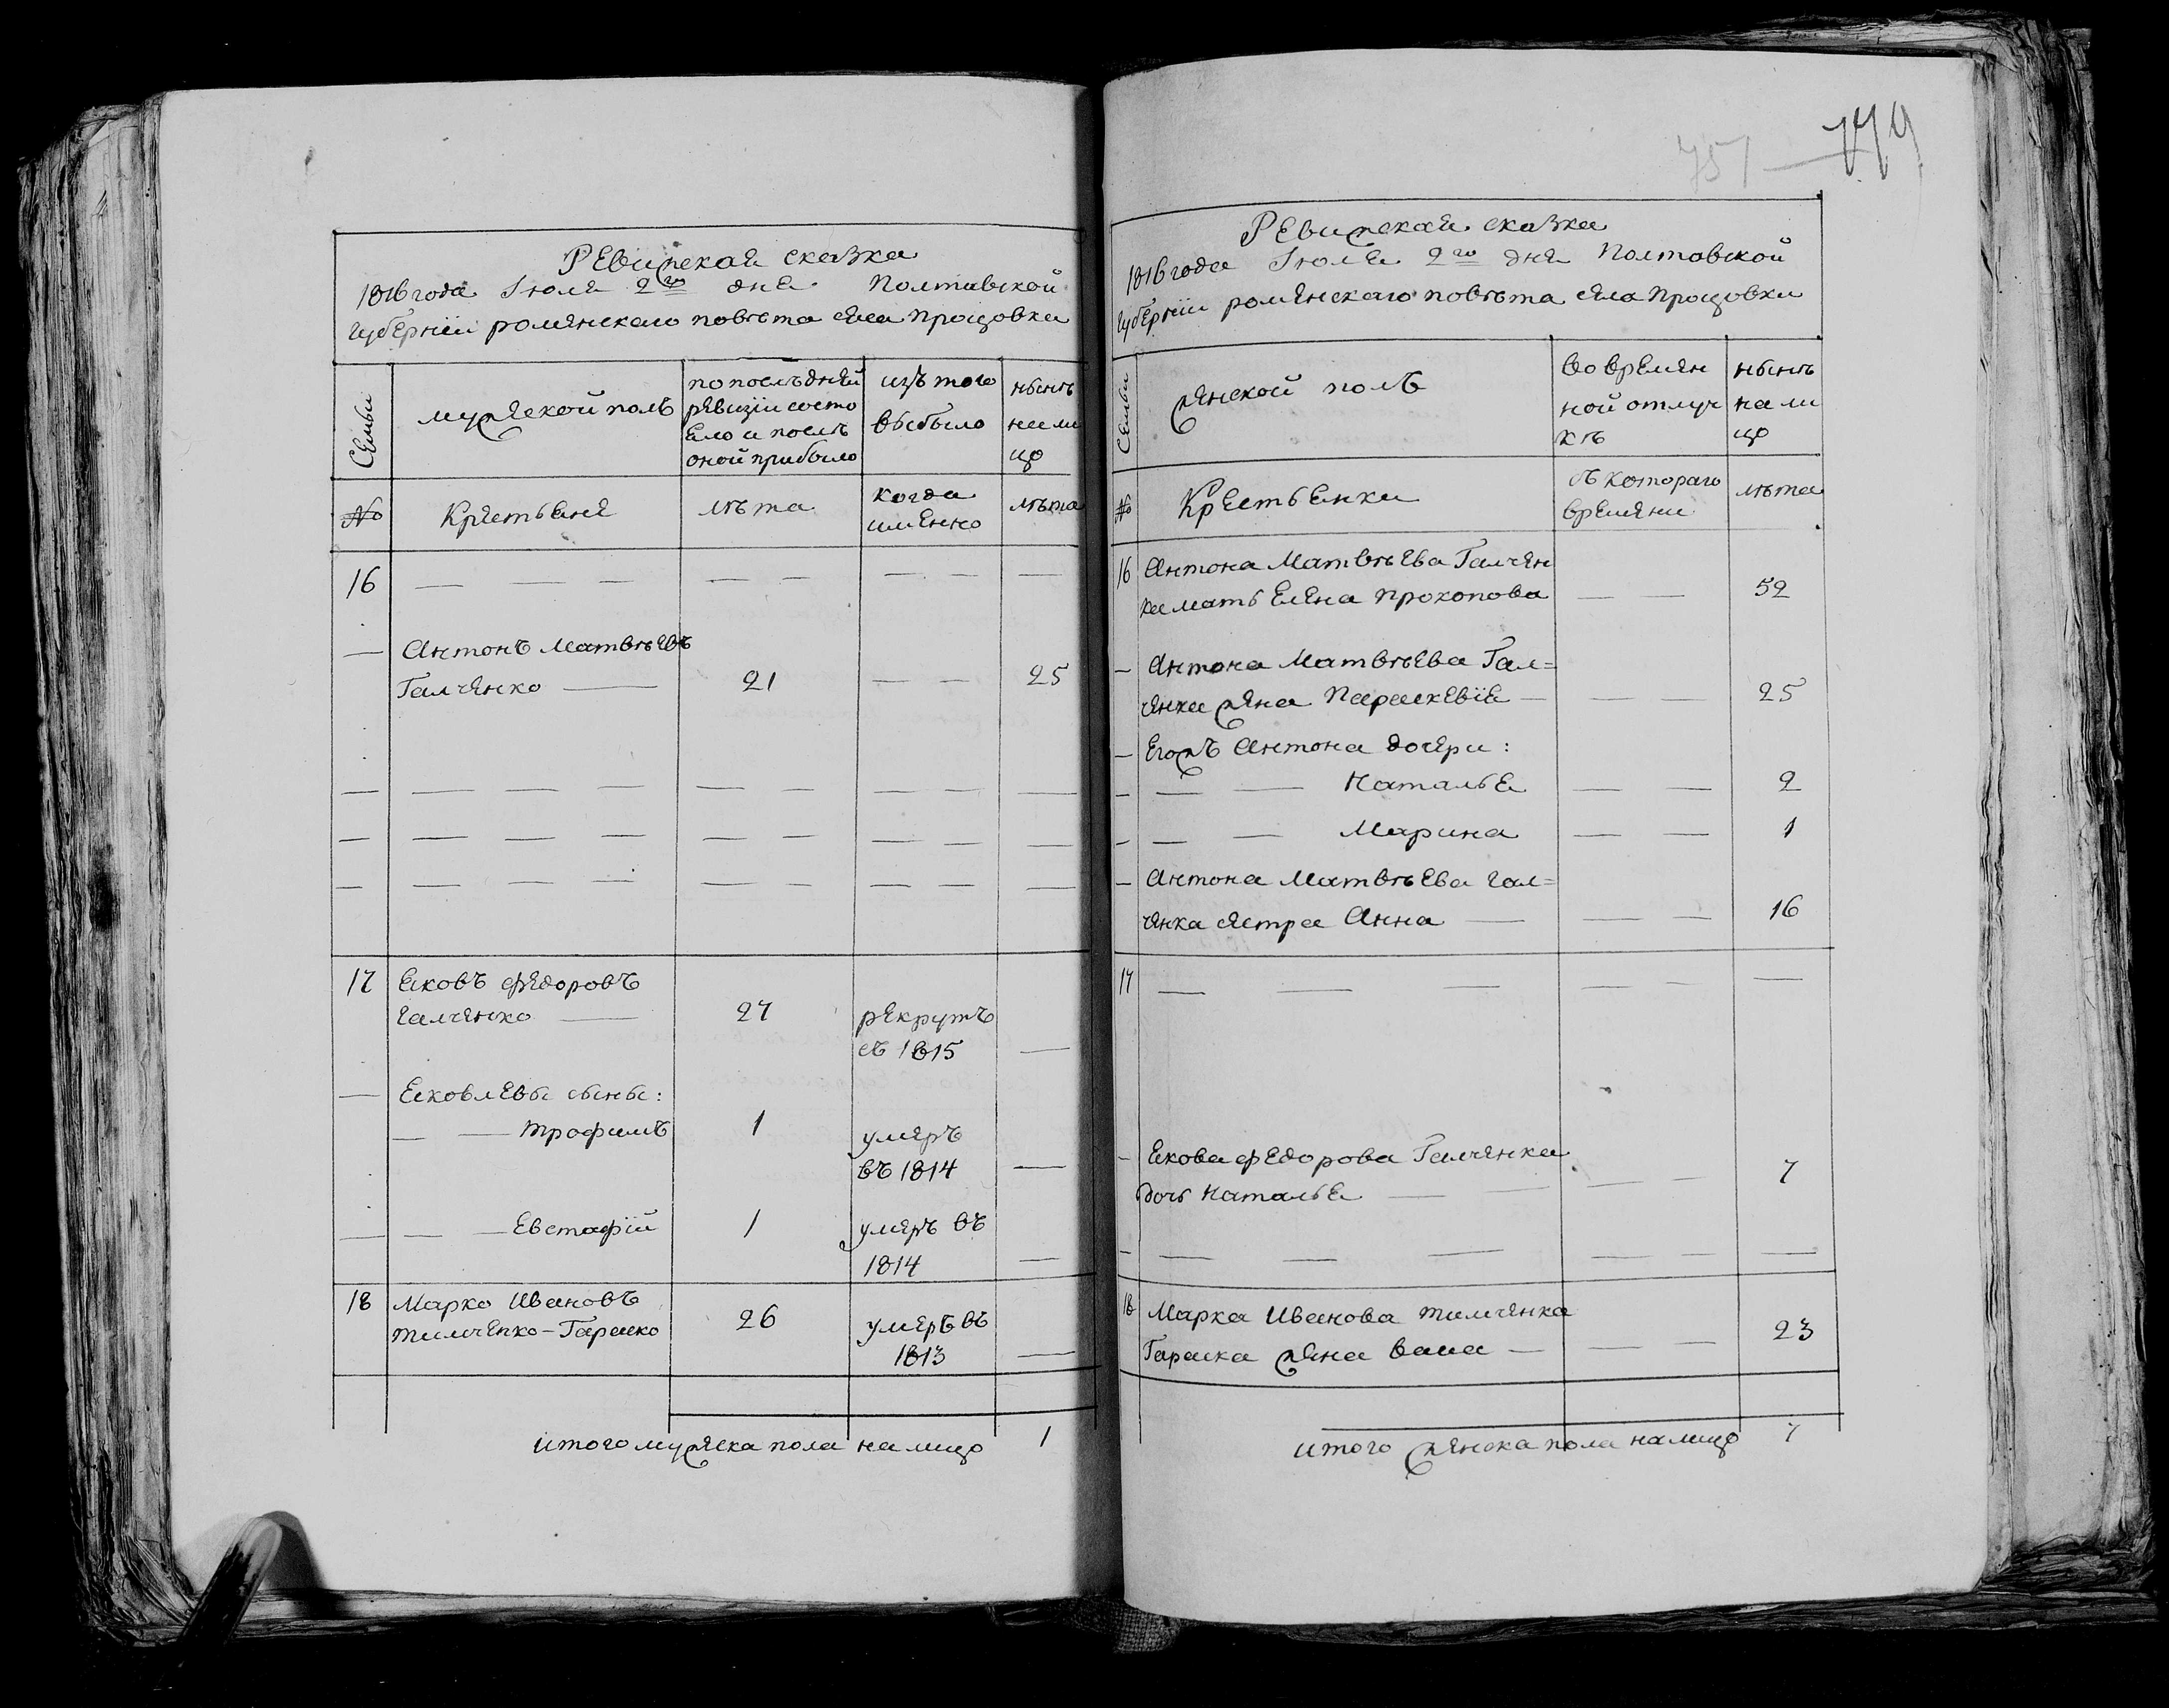 Ревижская сказка
1816 года Іюля 2го дня Полтавской
Губерніи роменскаго повѣта села Процовки
Семьи
мужеской полъ
по послѣдней
ревизіи состо
яло и послѣ
оной прибыло
изъ того
выбыло
нынѣ
на ли
цо
№
Крестьяне
лѣта
когда
именно
лѣта
16
Антонъ Матвѣевъ
Галченко
21
25
17
Яковъ Федоровъ
Галченко
27
рекрутъ
съ 1815
Яковлевы сыны:
Трофимъ
1
умеръ
въ 1814
Евстафій
1
умеръ въ
1814
18
Марко Ивановъ
Тимченко-Гараско
26
умеръ въ
1813
итого мужеска пола на лицо 1
751
779
Ревижская сказка
1816 года Іюля 2го дня Полтавской
Губерніи роменскаго повѣта села Процовки
Семьи
женской полъ
во времян
ной отлуч
кѣ
нынѣ
на ли
цо
№
Крестьянки
съ котораго
времени
лѣта
16
Антона Матвѣева Галчен
ка мать Елена Прокопова
52
Антона Матвѣева Гал=
ченка жена Параскевія
25
Егожъ Антона дочери:
Наталья
2
Марина
1
Антона Матвѣева Гал=
ченка сестра Анна
16
17
Якова Федорова Галченка
дочь Наталья
7
18
Марка Иванова Тимченка
Гараска жена Васа
23
итого женска пола на лицо 7